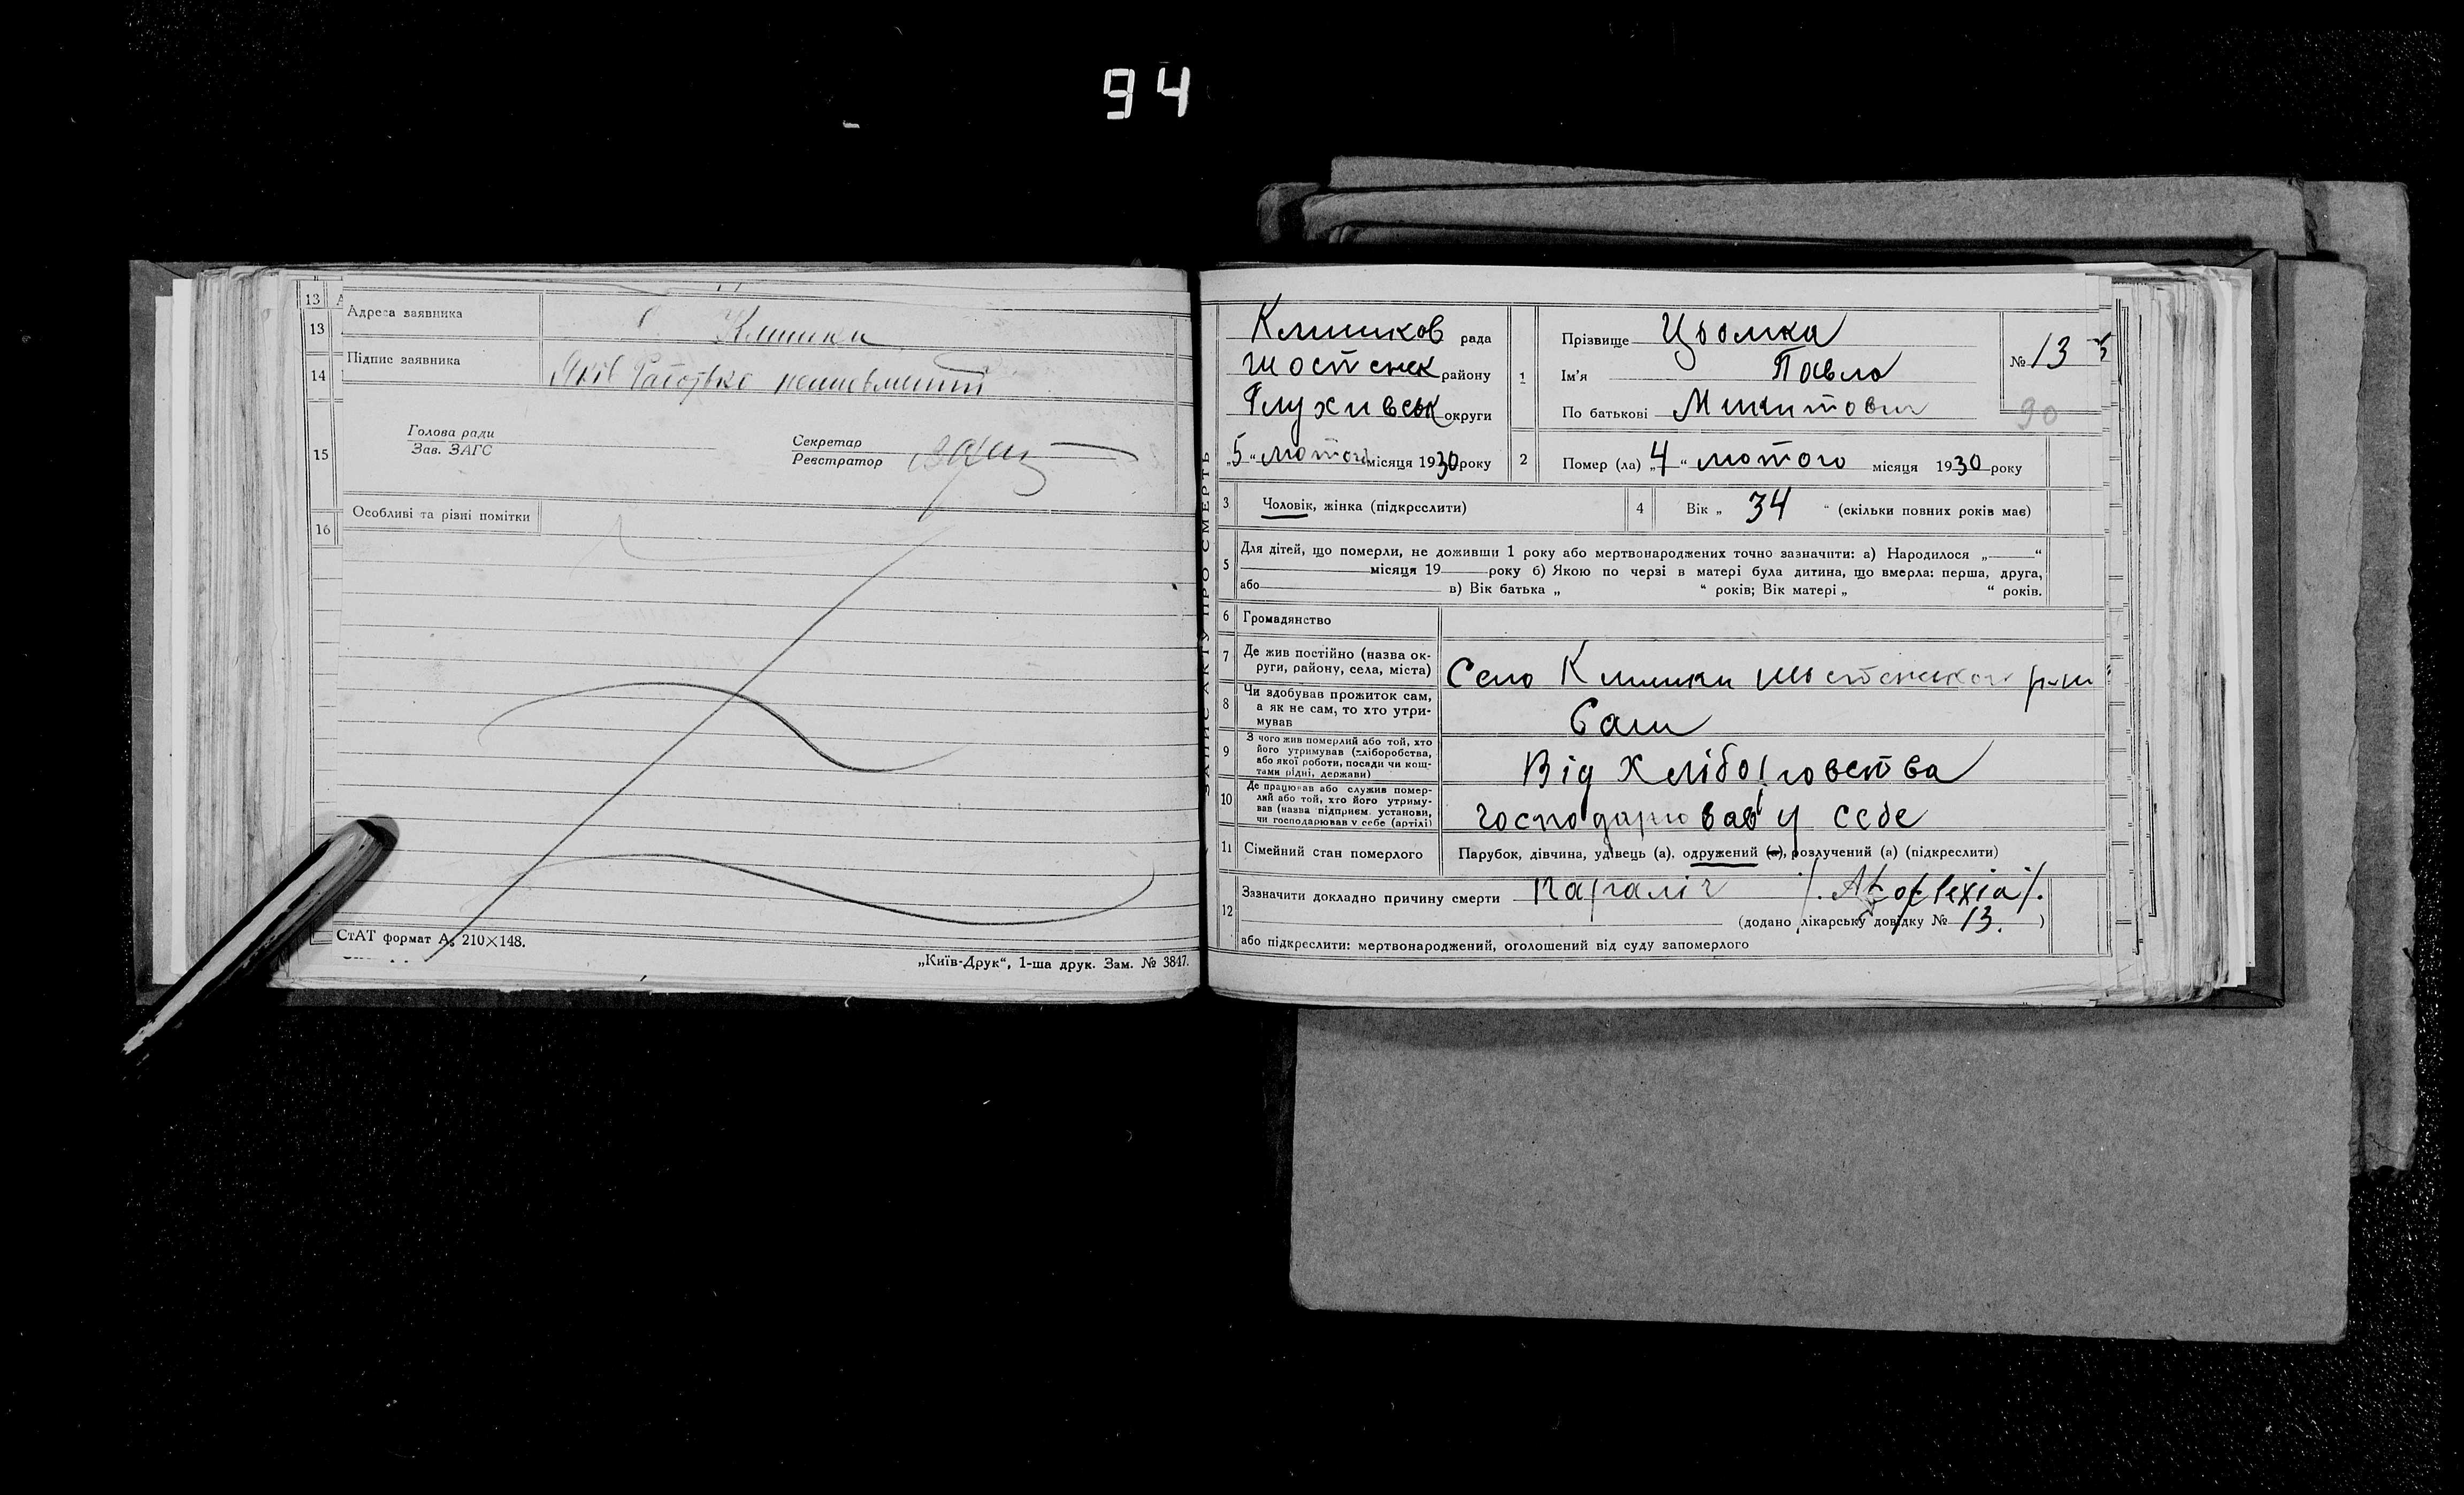 94
13
Адреса заявника
Клишки
13
Підпис заявника
14
Яків
Голова ради
Зав. ЗАГС
Секретар
Реєстратор
15
Особливі та різні помітки
16
СтАТ формат А₅ 210×148.
„Київ-Друк“, 1-ша друк. Зам. № 3847.
ЗАПИС АКТУ ПРО СМЕРТЬ
Клишков рада
Шостенск району
Глухивськ округи
„5“ лютого місяця 1930 року
1
Прізвище Цьомка
Ім'я Павло
По батькові Микитович
№ 13
90
2
Помер (ла) „4“ лютого місяця 1930 року
3
Чоловік, жінка (підкреслити)
4
Вік „ 34 “ (скільки повних років має)
5
Для дітей, що померли, не доживши 1 року або мертвонароджених точно зазначити: а) Народилося „ “
місяця 19 року б) Якою по черзі в матері була дитина, що вмерла: перша, друга,
або в) Вік батька „ “ років; Вік матері „ “ років.
6
Громадянство
7
Де жив постійно (назва ок-
руги, району, села, міста)
Село Клишки Шостенского р-ну
8
Чи здобував прожиток сам,
а як не сам, то хто утри-
мував
Сам
9
З чого жив померлий або той, хто
його утримував (хліборобства,
або якої роботи, посади чи кош-
тами рідні, держави)
Від Хліборовства
10
Де працював або служив помер-
лий або той, хто його утриму-
вав (назва підприєм. установи,
чи господарював у себе (артілі)
господарював у себе
11
Сімейний стан померлого
Парубок, дівчина, удівець (а), одружений (а), розлучений (а) (підкреслити)
12
Зазначити докладно причину смерти параліч /. Apoplexia /.
(додано лікарську довідку № 13. )
або підкреслити: мертвонароджений, оголошений від суду запомерлого